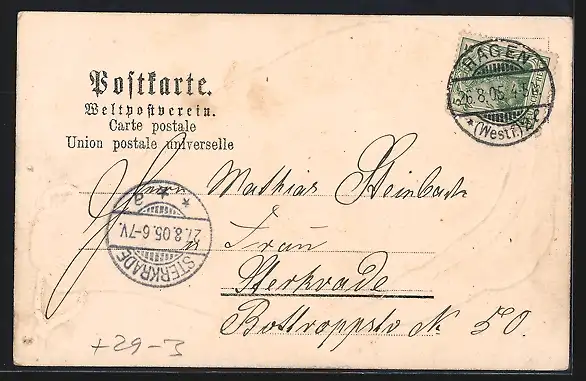 Postkarte.
Weltpostverein.
Carte postale
Union postale universelle
HAGEN
26.8.05. 4-5
*(Westf.)
Herrn Mathias Steinbach
u Frau
Sterkrade
Bottroppstr № 50.
STERKRADE
27.8.05. 6-7V.
* a *
+29-3